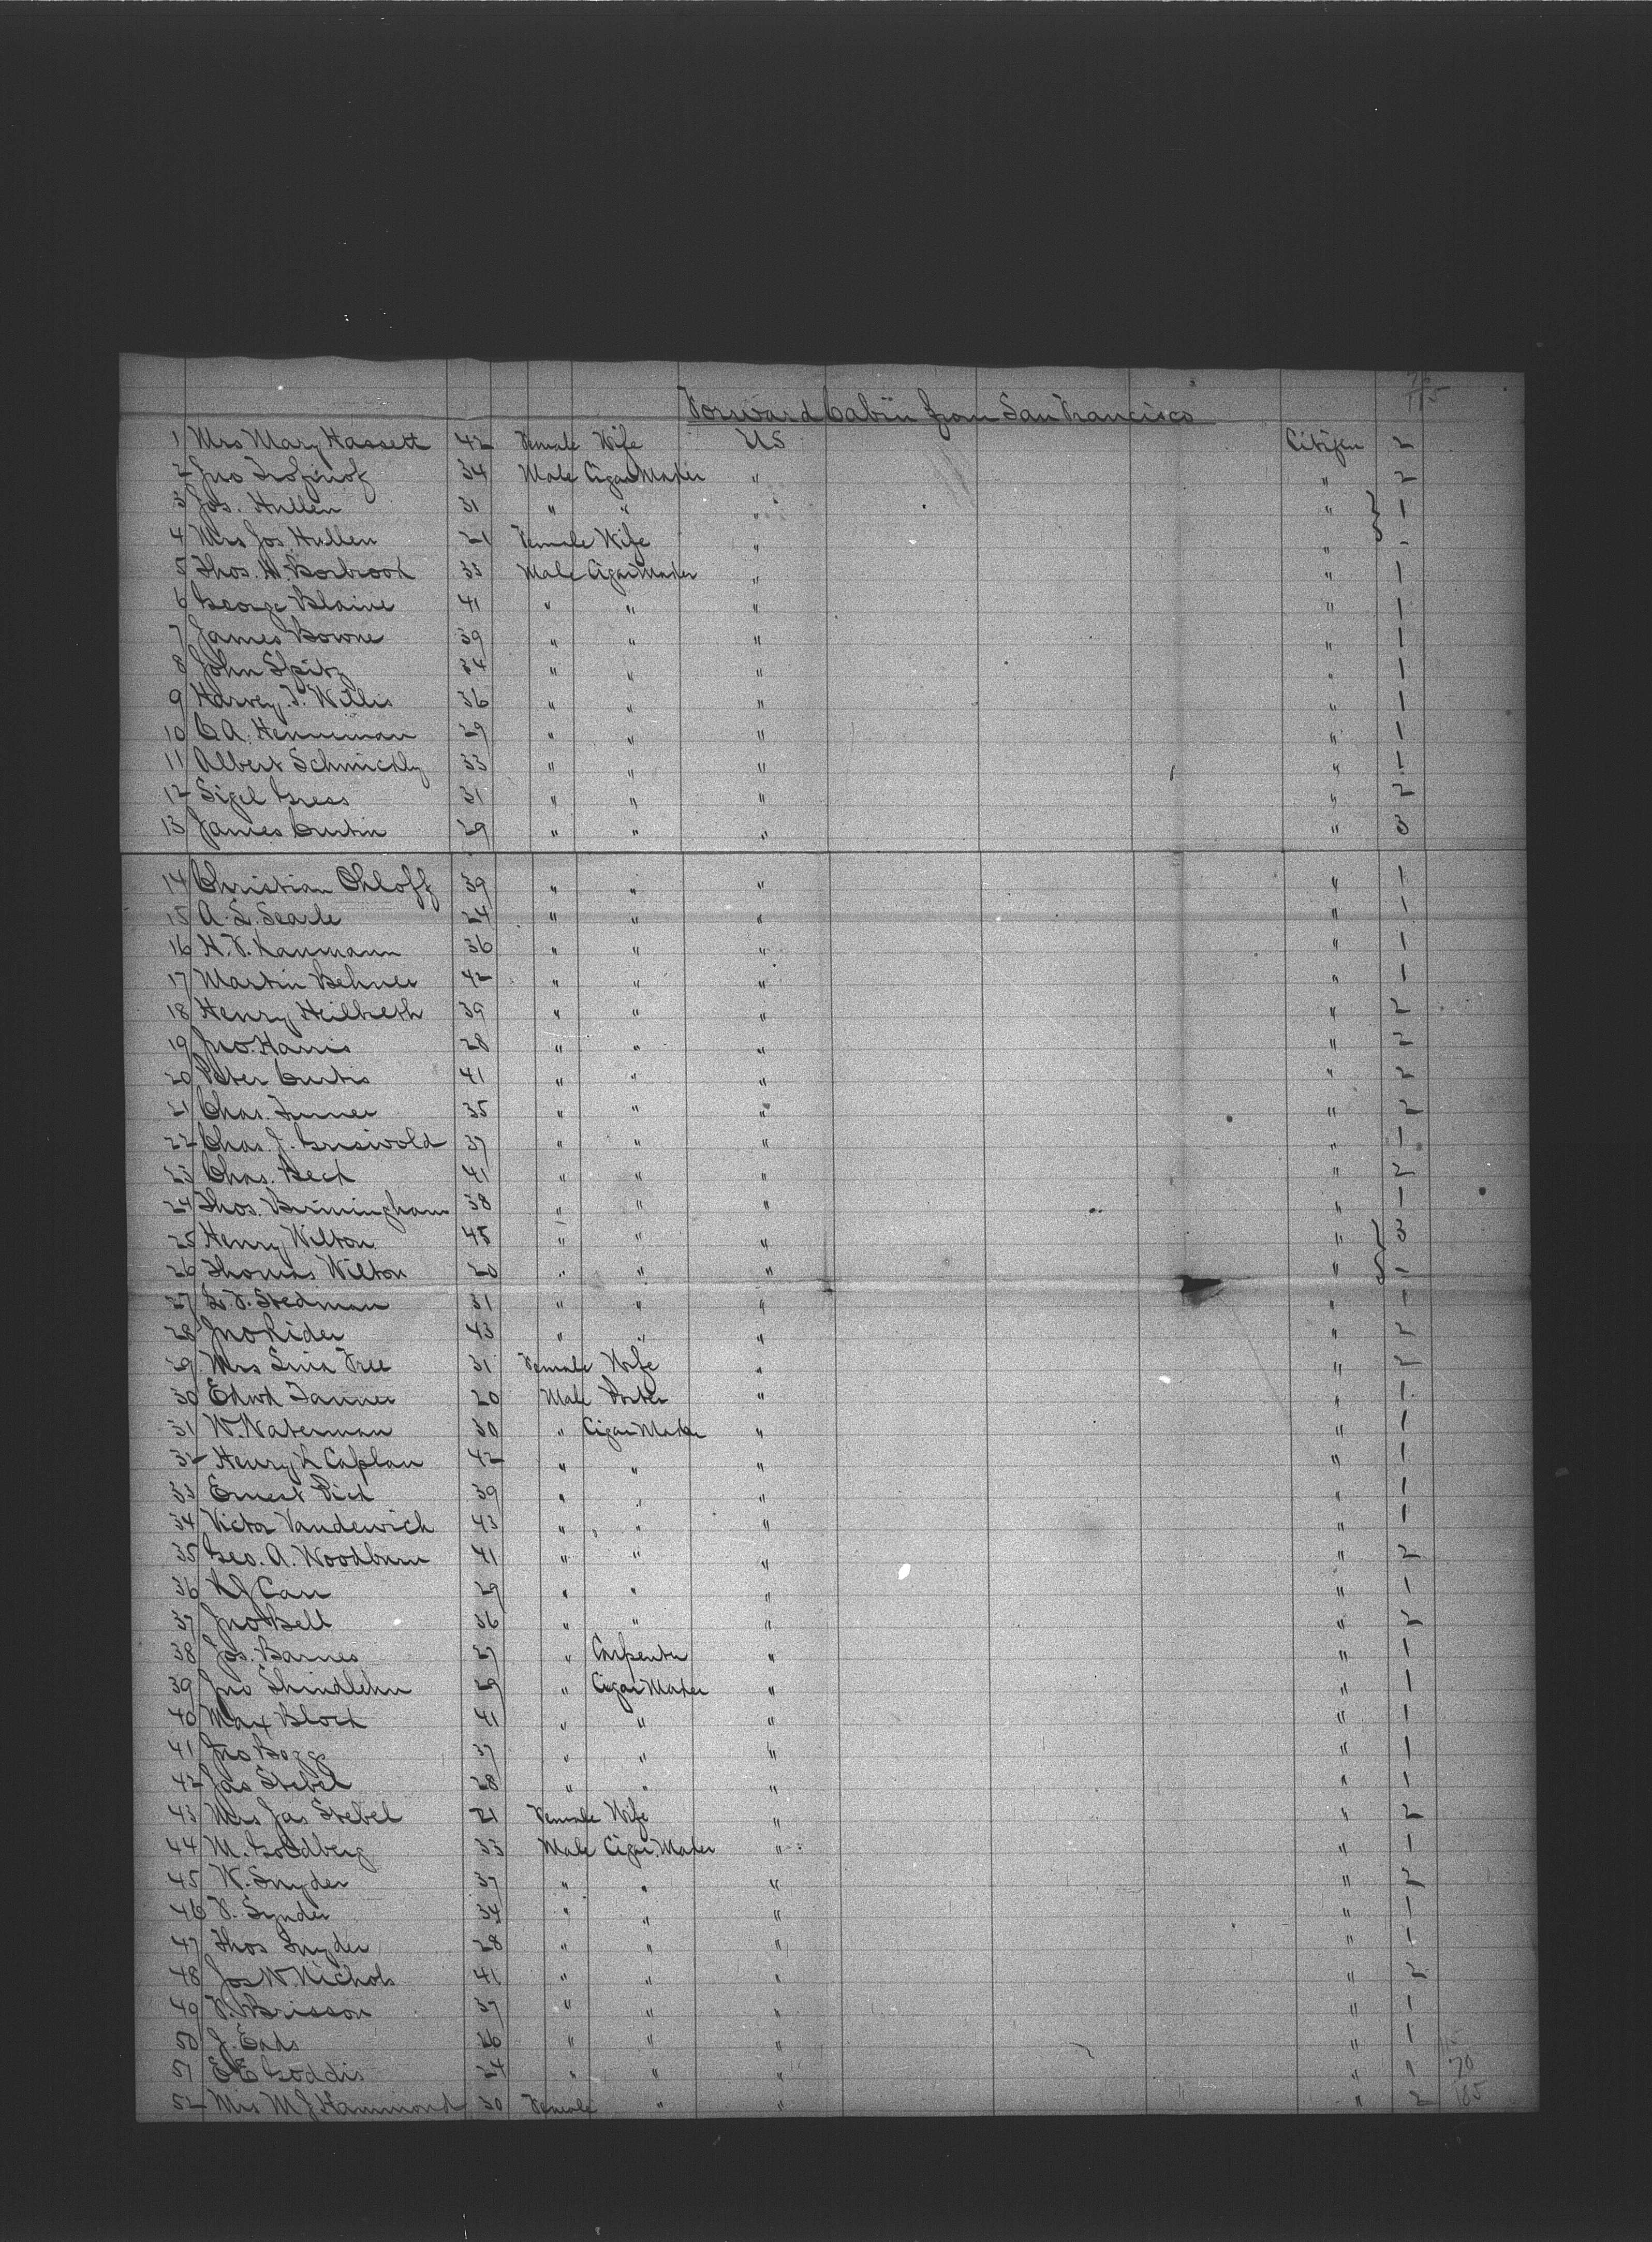 Forward Cabin from San Francisco
1 Mrs Mary Hassett 42 Female Wife US Citizen 2
2 Jno Trofinof 34 Male Cigar Maker " " 2
3 Jos. Hullen 31 " " " " 1
4 Mrs Jos Hullen 21 Female Wife " " -
5 Thos. W. Borbrook 33 Male Cigar Maker " " 1
6 George Blaine 41 " " " " 1
7 James Bowne 39 " " " " 1
8 John Spitz 34 " " " " 1
9 Harvey T. Willis 36 " " " " 1
10 C A. Henneman 29 " " " " 1
11 Albert Schmichly 33 " " " " 1
12 Sigel Gress 31 " " " " 2
13 James Curtin 29 " " " " 3
14 Christian Ohloff 39 " " " " 1
15 A. L. Searle 24 " " " " 1
16 H. F. Kaumann 36 " " " " 1
17 Martin Behner 42 " " " " 1
18 Henry Heilbeth 39 " " " " 2
19 Jno. Harris 28 " " " " 2
20 Peter Curtis 41 " " " " 2
21 Chas. Turner 35 " " " " 2
22 Chas. J. Griswold 37 " " " " 1
23 Chas. Beck 41 " " " " 2
24 Thos. Birmingham 38 " " " " 1
25 Henry Wilton 45 " " " " 3
26 Thomas Wilton 20 " " " " -
27 L. F. Stedman 31 " " " " 1
28 Jno Rider 43 " " " " 2
29 Mrs Lina Free 31 Female Wife " " 2
30 Edwd Tanner 20 Male Porter " " 1
31 W. Waterman 30 " Cigar Maker " " 1
32 Henry L Caplan 42 " " " " 1
33 Ernest Pick 39 " " " " 1
34 Victor Vandewich 43 " " " " 1
35 Geo. A. Woodburn 41 " " " " 2
36 R J Carr 29 " " " " 1
37 Jno Bell 36 " " " " 2
38 Jos. Barnes 27 " Carpenter " " 1
39 Jno Shindlehn 29 " Cigar Maker " " 1
40 Max Block 41 " " " " 1
41 Jno Boggs 37 " " " " 1
42 Jas Stebel 28 " " " " 1
43 Mrs Jas Stebel 21 Female Wife " " 2
44 M. Goldberg 33 Male Cigar Maker " " 1
45 W. Snyder 37 " " " " 2
46 F. Synder 34 " " " " 1
47 Thos Snyder 28 " " " " 1
48 Jos W. Nichols 41 " " " " 2
49 F. Brisson 37 " " " " 1
50 J. Eads 26 " " " " 1
51 E E Goddis 24 " " " " 1 70
52 Mrs M J Hammond 30 Female " " " 2 185